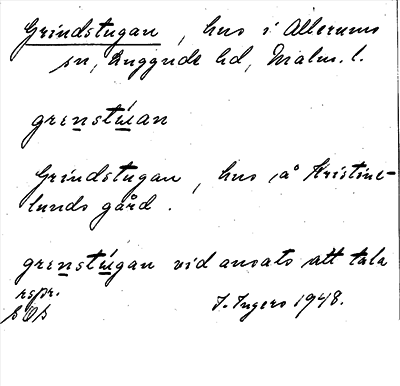 Grindstugan, hus i Allerums
sn, Luggude hd, Malm. l.
grenstúan
Grindstugan, hus å Kristine-
lunds gård.
grenstúgan vid ansats att tala
rspr.
I. Ingers 1948.